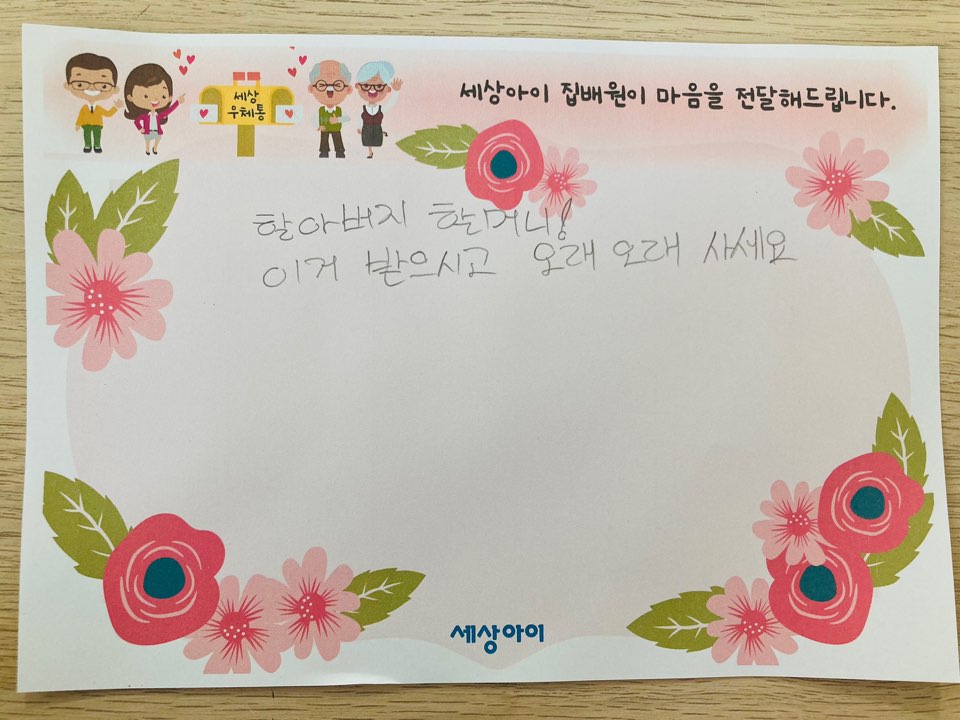 세상
우체통
세상아이 집배원이 마음을 전달해드립니다.
할아버지 할머니!
이거 받으시고 오래 오래 사세요
세상아이